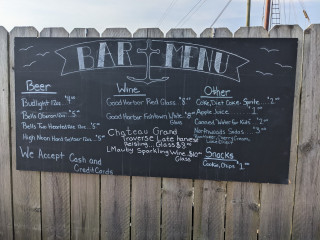 BAR MENU
Beer
Budlight 12oz. $4.00
Bells Oberon 12oz. $5.00
Bells Two Hearted Ale 12oz. $5.00
High Noon Hard Seltzer 12oz. $6.00
We Accept Cash and
Credit Cards
Wine
Good Harbor Red Glass $8.00
Good Harbor Fishtown White $8.00
Glass
Chateau Grand
Traverse Late harvest
Reisling... Glass $8.00
L. Mawby Sparkling Wine $10.00
Glass
Other
Coke, Diet Coke, Sprite... $2.00
Apple Juice
Canned Water for Kids
Northwoods Sodas
Snacks
Cookie, Chips $1.00